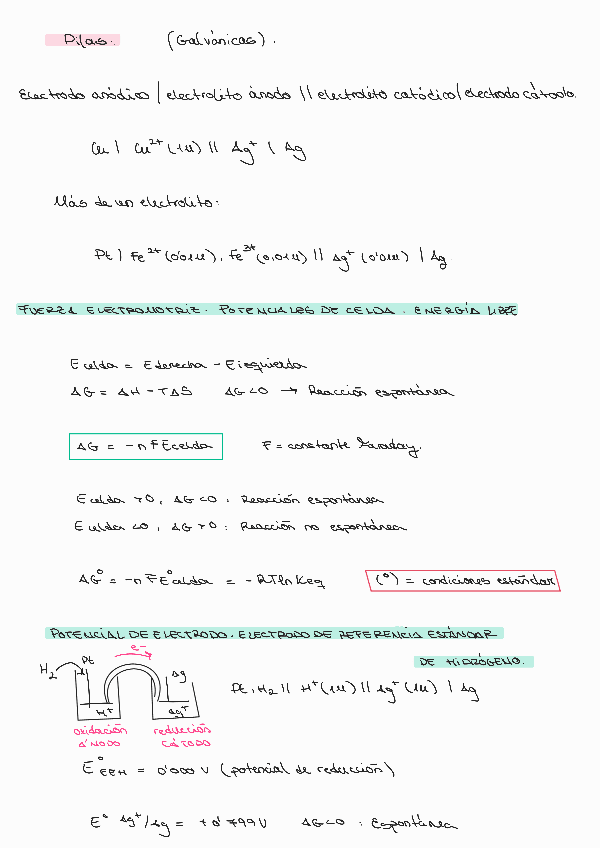 Pilas: (Galvánicas).
Electrodo anódico | electrolito ánodo || electrolito catódico | electrodo cátodo.
Cu | Cu²⁺ (1M) || Ag⁺ | Ag
Más de un electrolito:
Pt | Fe²⁺ (0'01M), Fe³⁺ (0,01M) || Ag⁺ (0'01M) | Ag
FUERZA ELECTROMOTRIZ. POTENCIALES DE CELDA. ENERGÍA LIBRE
E celda = E derecha - E izquierda
ΔG = ΔH - TΔS ΔG<0 → Reacción espontánea
ΔG = -nFEcelda F = constante Faraday.
E celda >0, ΔG<0 : Reacción espontánea
E celda <0, ΔG>0 : Reacción no espontánea
ΔG° = -nFE°celda = -RTlnKeq (°) = condiciones estándar
POTENCIAL DE ELECTRODO. ELECTRODO DE REFERENCIA ESTÁNDAR
DE HIDRÓGENO.
e-
H₂ Pt Ag
Pt, H₂ || H⁺ (1M) || Ag⁺ (1M) | Ag
H⁺ Ag⁺
oxidación reducción
ÁNODO CÁTODO
E°EEH = 0'000 V (potencial de reducción)
E° Ag⁺/Ag = +0'799V ΔG<0 : Espontánea